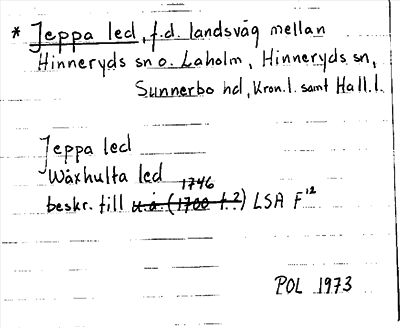 * Jeppa led, f.d. landsväg mellan
Hinneryds sn o. Laholm, Hinneryds sn,
Sunnerbo hd, Kron.l. samt Hall.l.
Jeppa led
Wäxhulta led
1746
beskr. till u.å. (1700 t.?) LSA F12
POL 1973